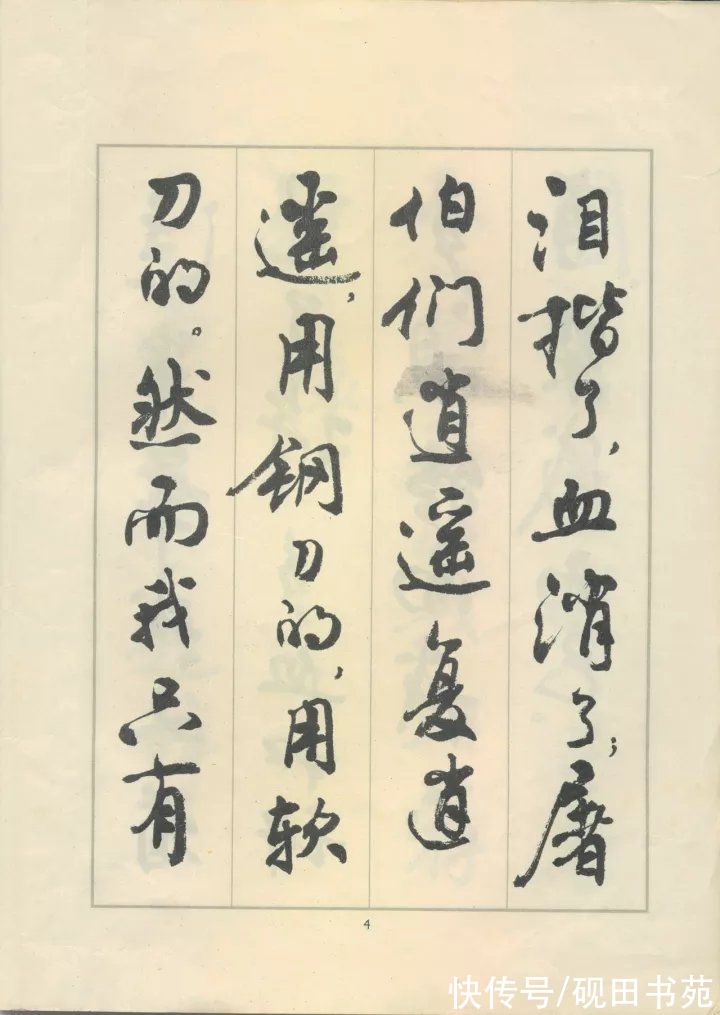 泪揩了，血消了；屠
伯们逍遥复逍
遥，用钢刀的，用软
刀的。然而我只有
4
快传号/砚田书苑